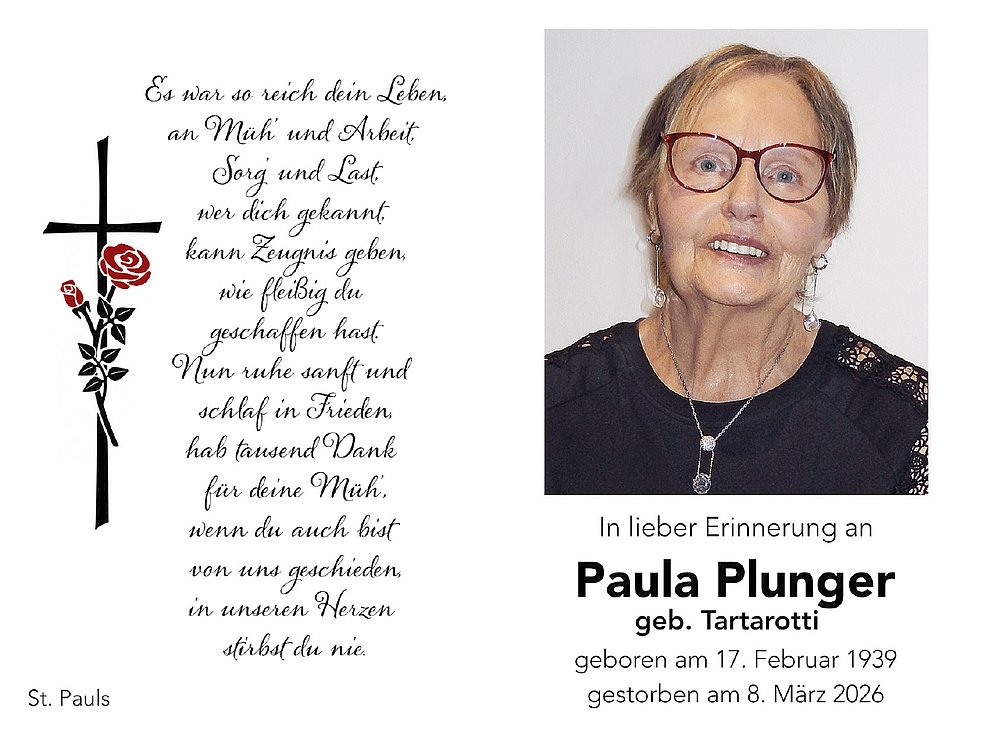 Es war so reich dein Leben,
an Müh' und Arbeit,
Sorg' und Last,
wer dich gekannt,
kann Zeugnis geben,
wie fleißig du
geschaffen hast.
Nun ruhe sanft und
schlaf in Frieden,
hab tausend Dank
für deine Müh',
wenn du auch bist
von uns geschieden,
in unseren Herzen
stirbst du nie.
St. Pauls
In lieber Erinnerung an
Paula Plunger
geb. Tartarotti
geboren am 17. Februar 1939
gestorben am 8. März 2026